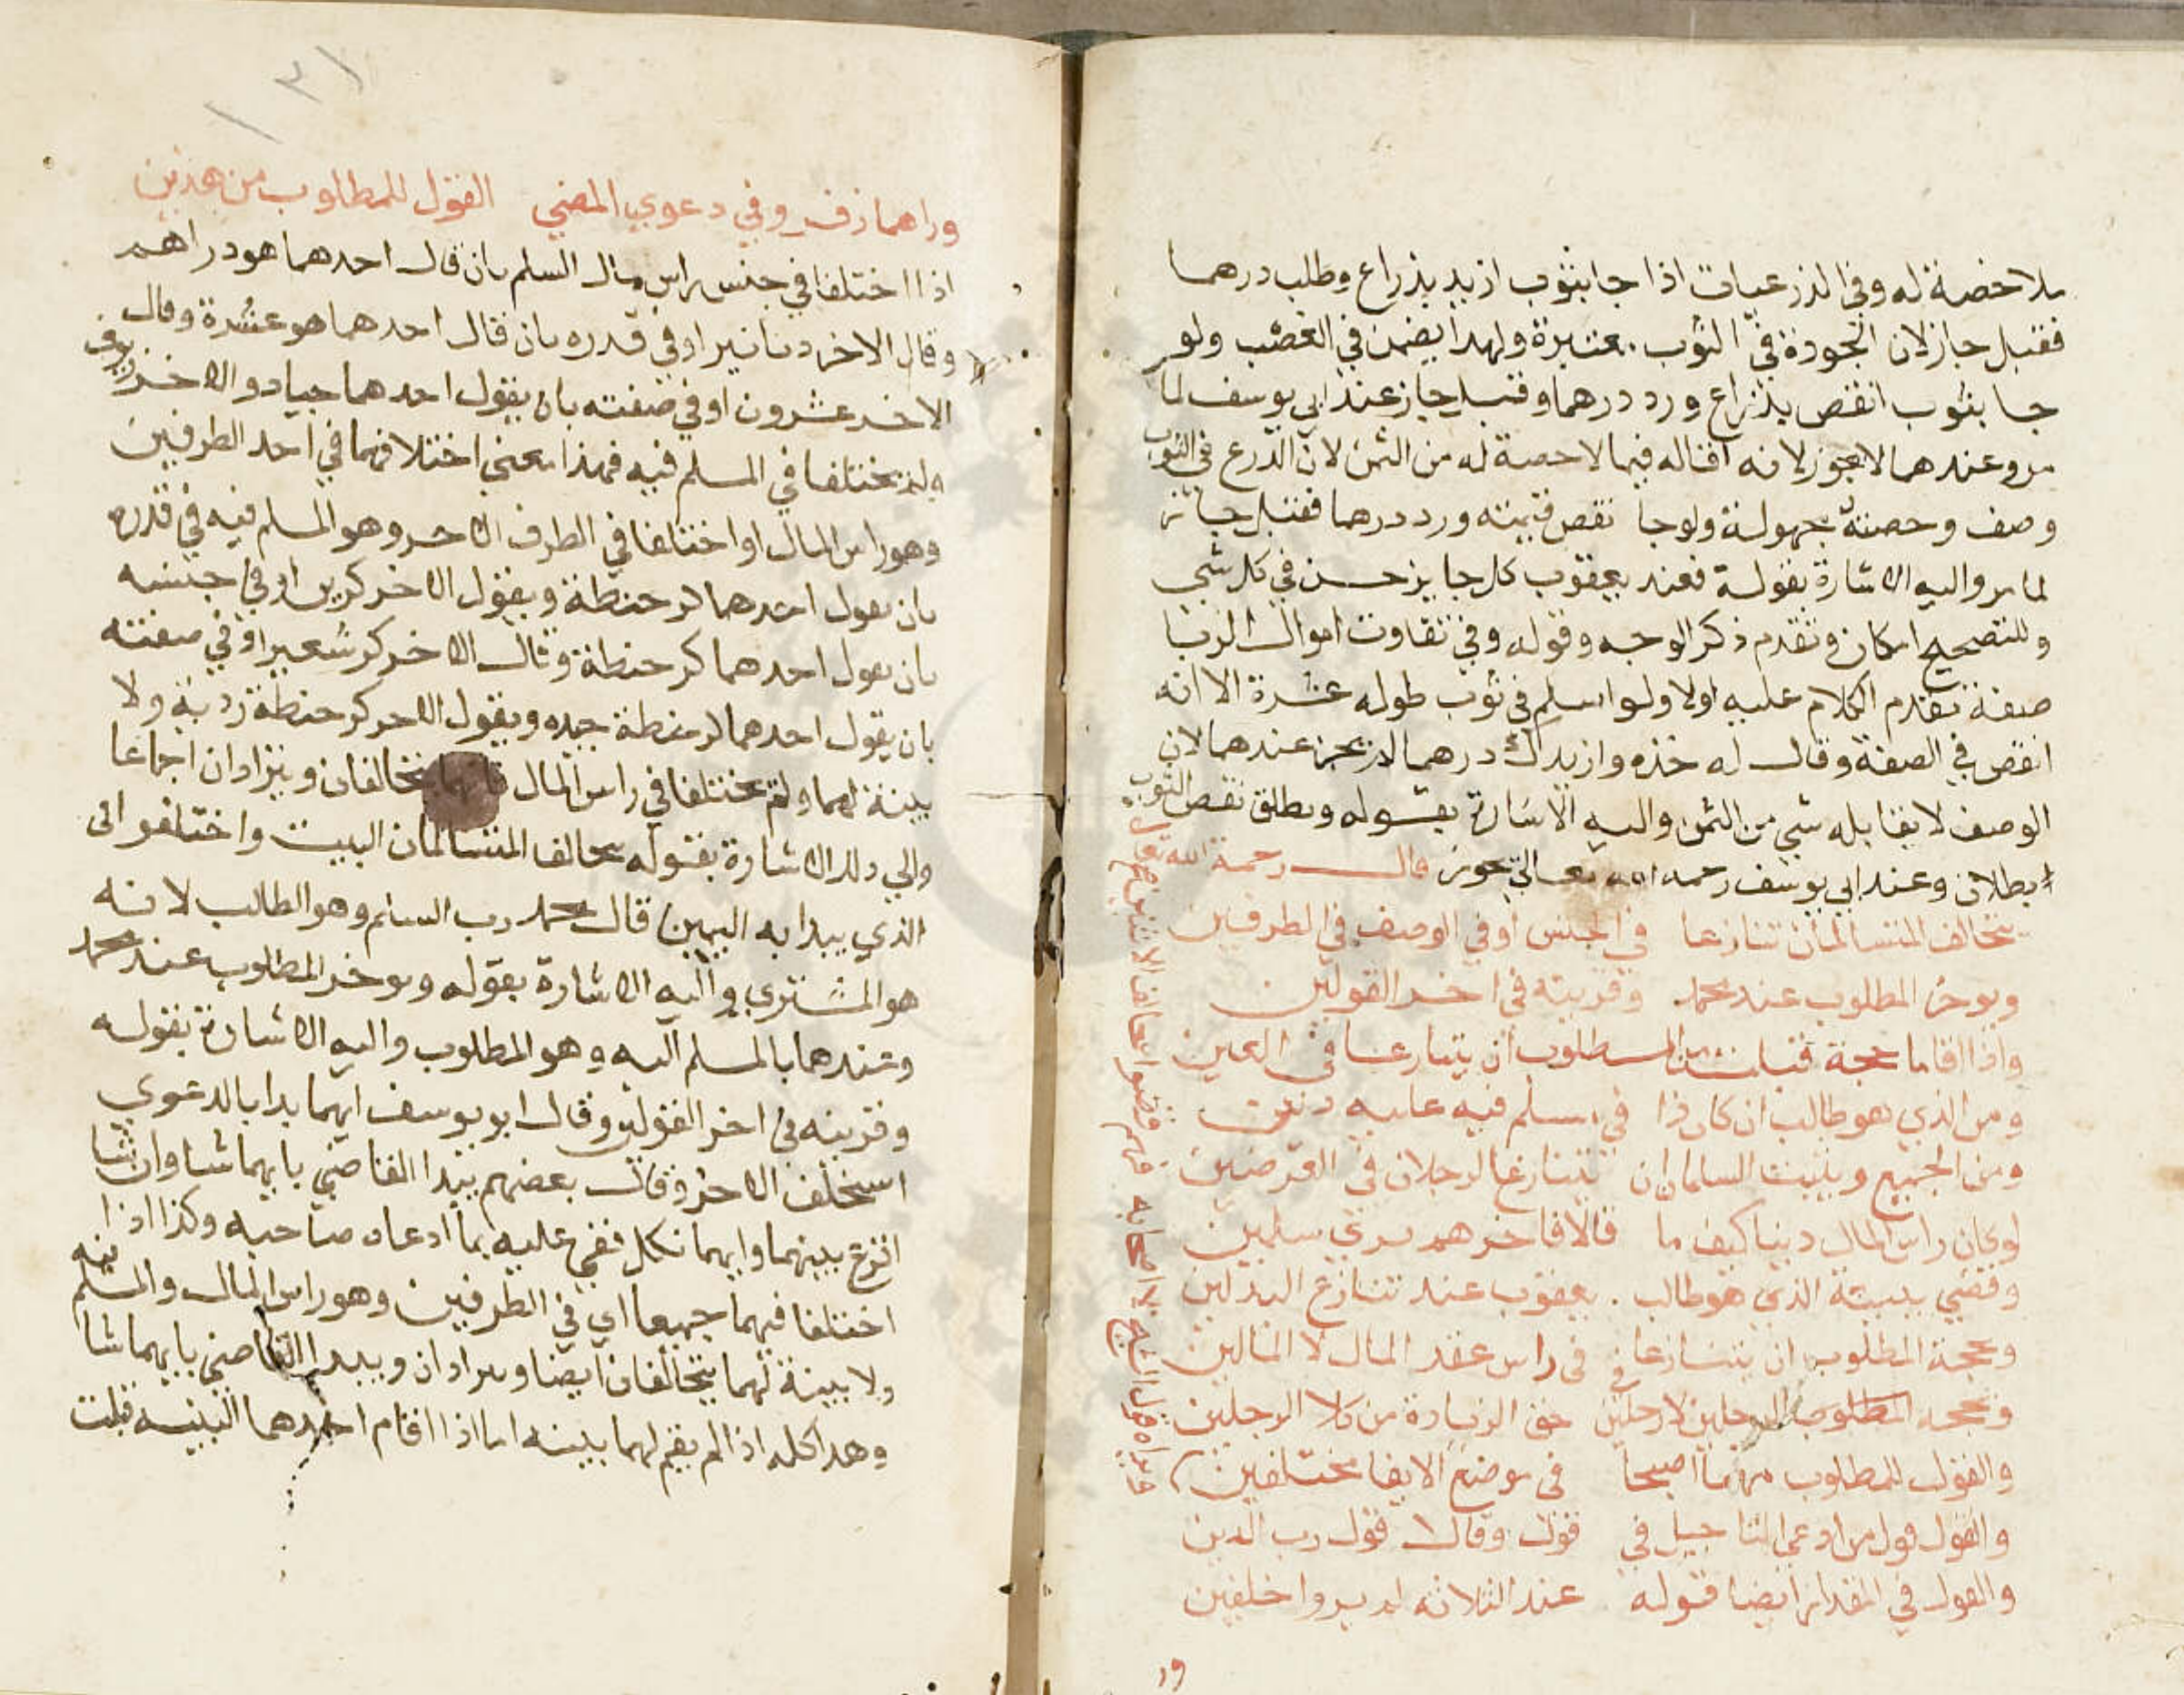 بلا حصة له وفي الذرعيات اذا جا بثوب ازيد بذراع وطلب درهما
فقبل جاز لان الجودة في الثوب معتبرة ولهذا يضمن في الغصب ولو
جا بثوب انقص بذراع ورد درهما وقبل جاز عند ابي يوسف لما
مر وعندهما لا يجوز لانه اقاله فيما لا حصة له من الثمن لان الذرع في الثوب
وصف وحصته مجهولة ولو جا نقص قيمته ورد درهما فقبل جائز
لما مر واليه الاشارة بقوله فعند يعقوب كل جايز حسن في كل شي
وللتصحيح امكان وتقدم ذكر الوجه وقوله وفي تفاوت اموال الربا
صفة تقدم الكلام عليه اولا ولو اسلم في ثوب طوله عشرة الا انه
انقص في الصفة وقال له خذه وازيدك درهما لا يجز عندهما لان
الوصف لا يقابله شي من الثمن واليه الاشارة بقوله ومطلق نقص الثوب
بطلان وعند ابي يوسف رحمه الله تعالى يجوز قال رحمة الله تعالى
تحالف المتسالمان تنازعا في الجنس او في الوصف في الطرفين
ويوخر المطلوب عند محمد وقرينة في اخر القولين
واذا اقاما حجة قبلت من المطلوب ان يتنازعا في العين
ومن الذي هو طالب ان كان ذا في مسلم فيه عليه دين
ومن الجميع ويثبت السلمان ان يتنازعا الرجلان في العرضين
لو كان راس المال دينا كيف ما قالا فاخرهم يرى سلمين
وقضي ببينة الذي هو طالب يعقوب عند تنازع البدلين
وبحجة المطلوب ان يتنازعا في راس عقد المال لا المالين
وبحجة الرجلين لا رجلين حق الزيادة من كلا الرجلين
والقول للمطلوب مهما اصبحا في موضع الايفا مختلفين
والقول قول من ادعى التاجيل في قول وقالا قول رب الدين
والقول في المقدار ايضا قوله عند الثلاثة لم يروا خلفين
ور
ورا هما زفر وفي دعوي المضي القول للمطلوب من هذين
اذا اختلفا في جنس راس مال السلم بان قال احدهما هو دراهم
وقال الاخر دنانير او في قدره بان قال احدهما هو عشرة وقال
الاخر عشرون او في صفته بان يقول احدهما جياد والاخر زيوف
ولم يختلفا في المسلم فيه فهذا معنى اختلافهما في احد الطرفين
وهو راس المال او اختلفا في الطرف الاخر وهو المسلم فيه في قدره
بان يقول احدهما كر حنطة ويقول الاخر كرين او في جنسه
بان يقول احدهما كر حنطة وقال الاخر كر شعير او في صفته
بان يقول احدهما كر حنطة جيده ويقول الاخر كر حنطة ردية ولا
بينة لهما ولم يختلفا في راس المال فانهما يتحالفان ويترادان اجماعا
والي ذلك الاشارة بقوله تحالف المتسالمان البيت واختلفوا في
الذي يبدا به اليمين قال محمد رب السلم وهو الطالب لانه
هو المشتري واليه الاشارة بقوله ويوخر المطلوب عند محمد
وعندهما بالمسلم اليه وهو المطلوب واليه الاشارة بقوله
وقرينه في اخر القولين وقال ابو يوسف ايهما بدا بالدعوي
استحلف الاخر وقال بعضهم يبتدا القاضي بايهما شا وان شا
اقرع بينهما وايهما نكل قضي عليه بما ادعاه صاحبه وكذا اذا
اختلفا فيهما جميعا اي في الطرفين وهو راس المال والمسلم فيه
ولا بينة لهما يتحالفان ايضا ويترادان ويبدا القاضي بايهما شا
وهذا كله اذا لم يقم لهما بينه اما اذا اقام احدهما البينه قبلت